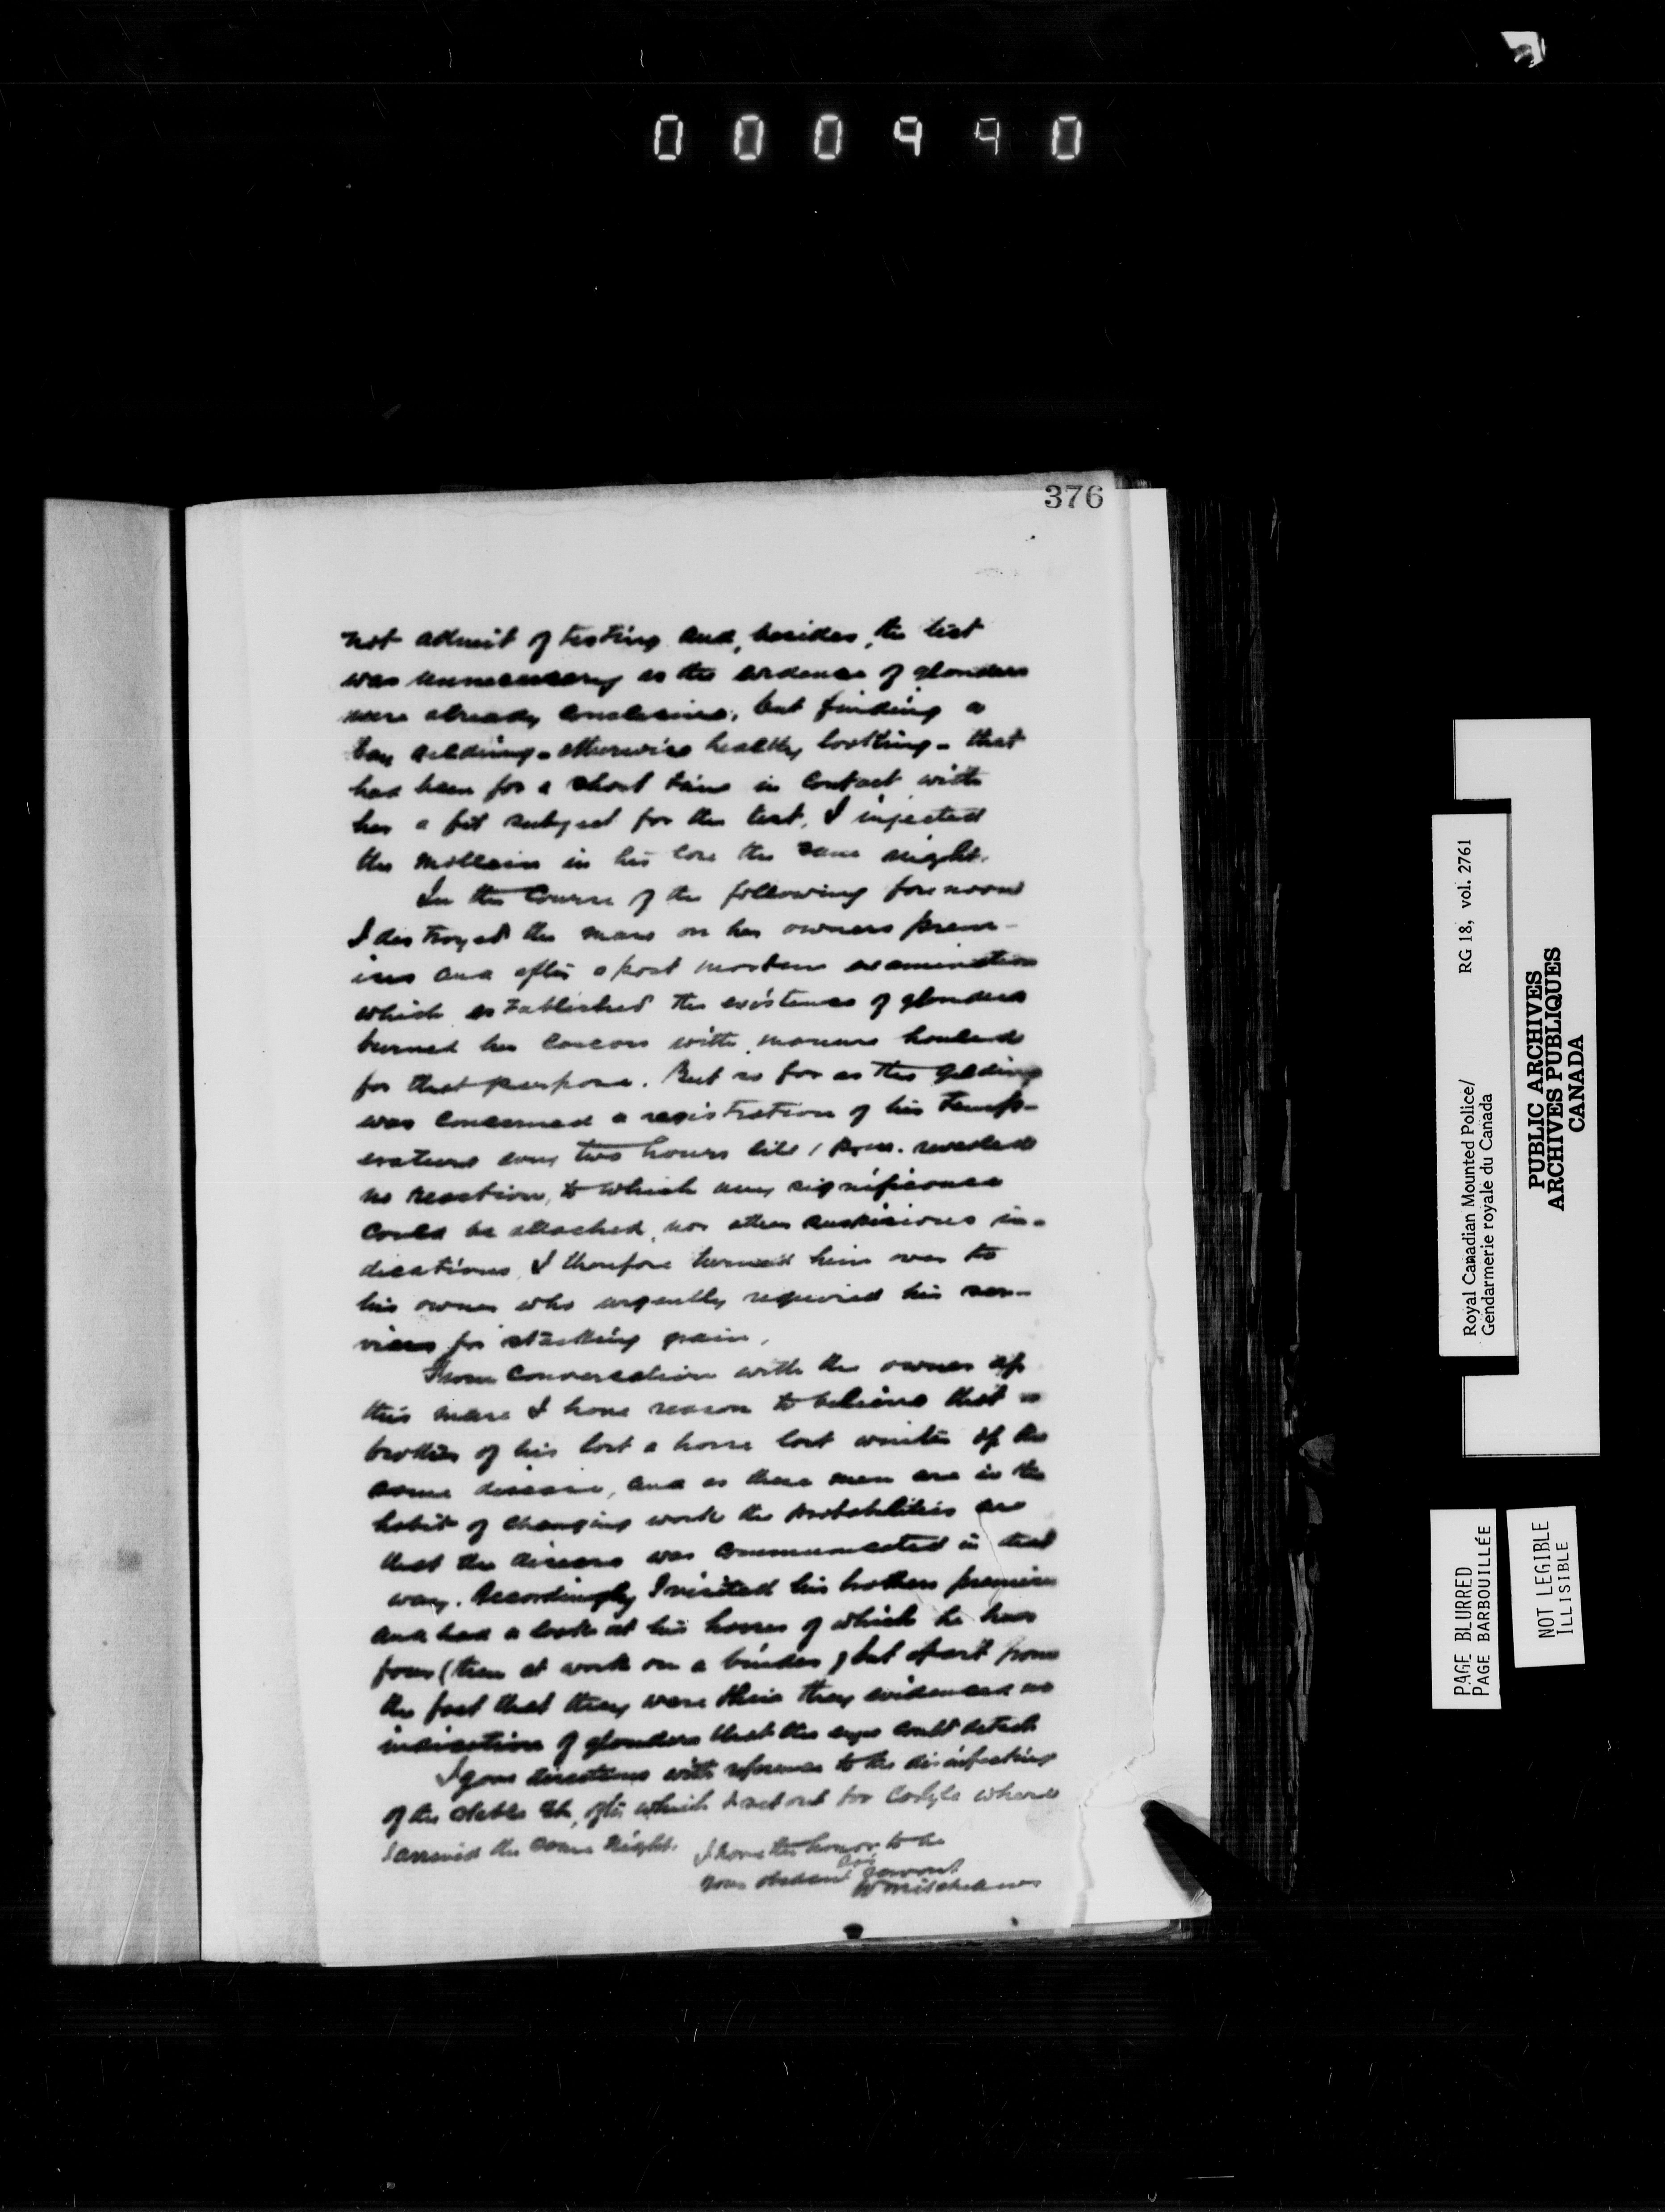 000990
376
not admit of testing and, besides, the test
was unnecessary as the evidence of glanders
were already conclusive, but finding a
bay gelding - otherwise healthy looking - that
had been for a short time in contact with
her a fit subject for the test, I injected
the mallein in his the same night.
In the course of the following forenoon
I destroyed the mare on her owners prem-
ises and after a post mortem examination
which established the existence of glanders
burned her carcass with manure hauled
for that purpose. But so far as the gelding
was concerned a registration of his temp-
erature every two hours till 1 p.m. revealed
no reaction, to which any significance
could be attached, nor other suspicious in-
dications, I therefore turned him over to
his owner who urgently required his ser-
vices for stacking grain.
From conversation with the owner of
this mare I have reason to believe that a
brother of his lost a horse last winter of the
same disease, and as these men are in the
habit of changing work the probabilities are
that the disease was communicated in that
way. Accordingly I visited his brothers premises
and had a look at his horses of which he has
four (then at work on a binder) but apart from
the fact that they were thin they evidenced no
indication of glanders that the eye could detect
I gave directions with reference to the disinfecting
of the stable &c, after which I set out for Carlyle where
I arrived the same night. I have the honor to be
Sir
your obedient servant
Royal Canadian Mounted Police/ RG 18, vol. 2761
Gendarmerie royale du Canada
PUBLIC ARCHIVES
ARCHIVES PUBLIQUES
CANADA
PAGE BLURRED
PAGE BARBOUILLÉE
NOT LEGIBLE
ILLISIBLE